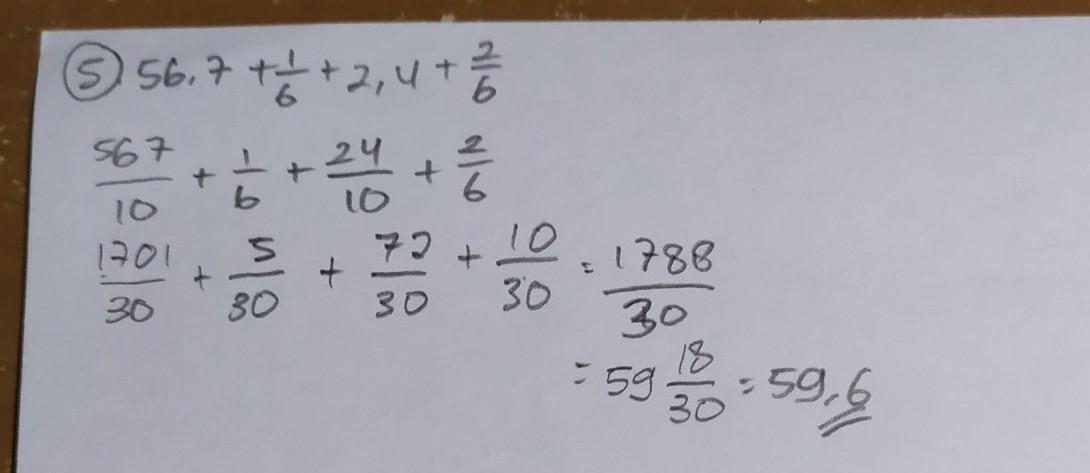 ⑤ 56.7 + 1/6 + 2,4 + 2/6
567/10 + 1/6 + 24/10 + 2/6
1701/30 + 5/30 + 72/30 + 10/30 = 1788/30
= 59 18/30 = 59,6